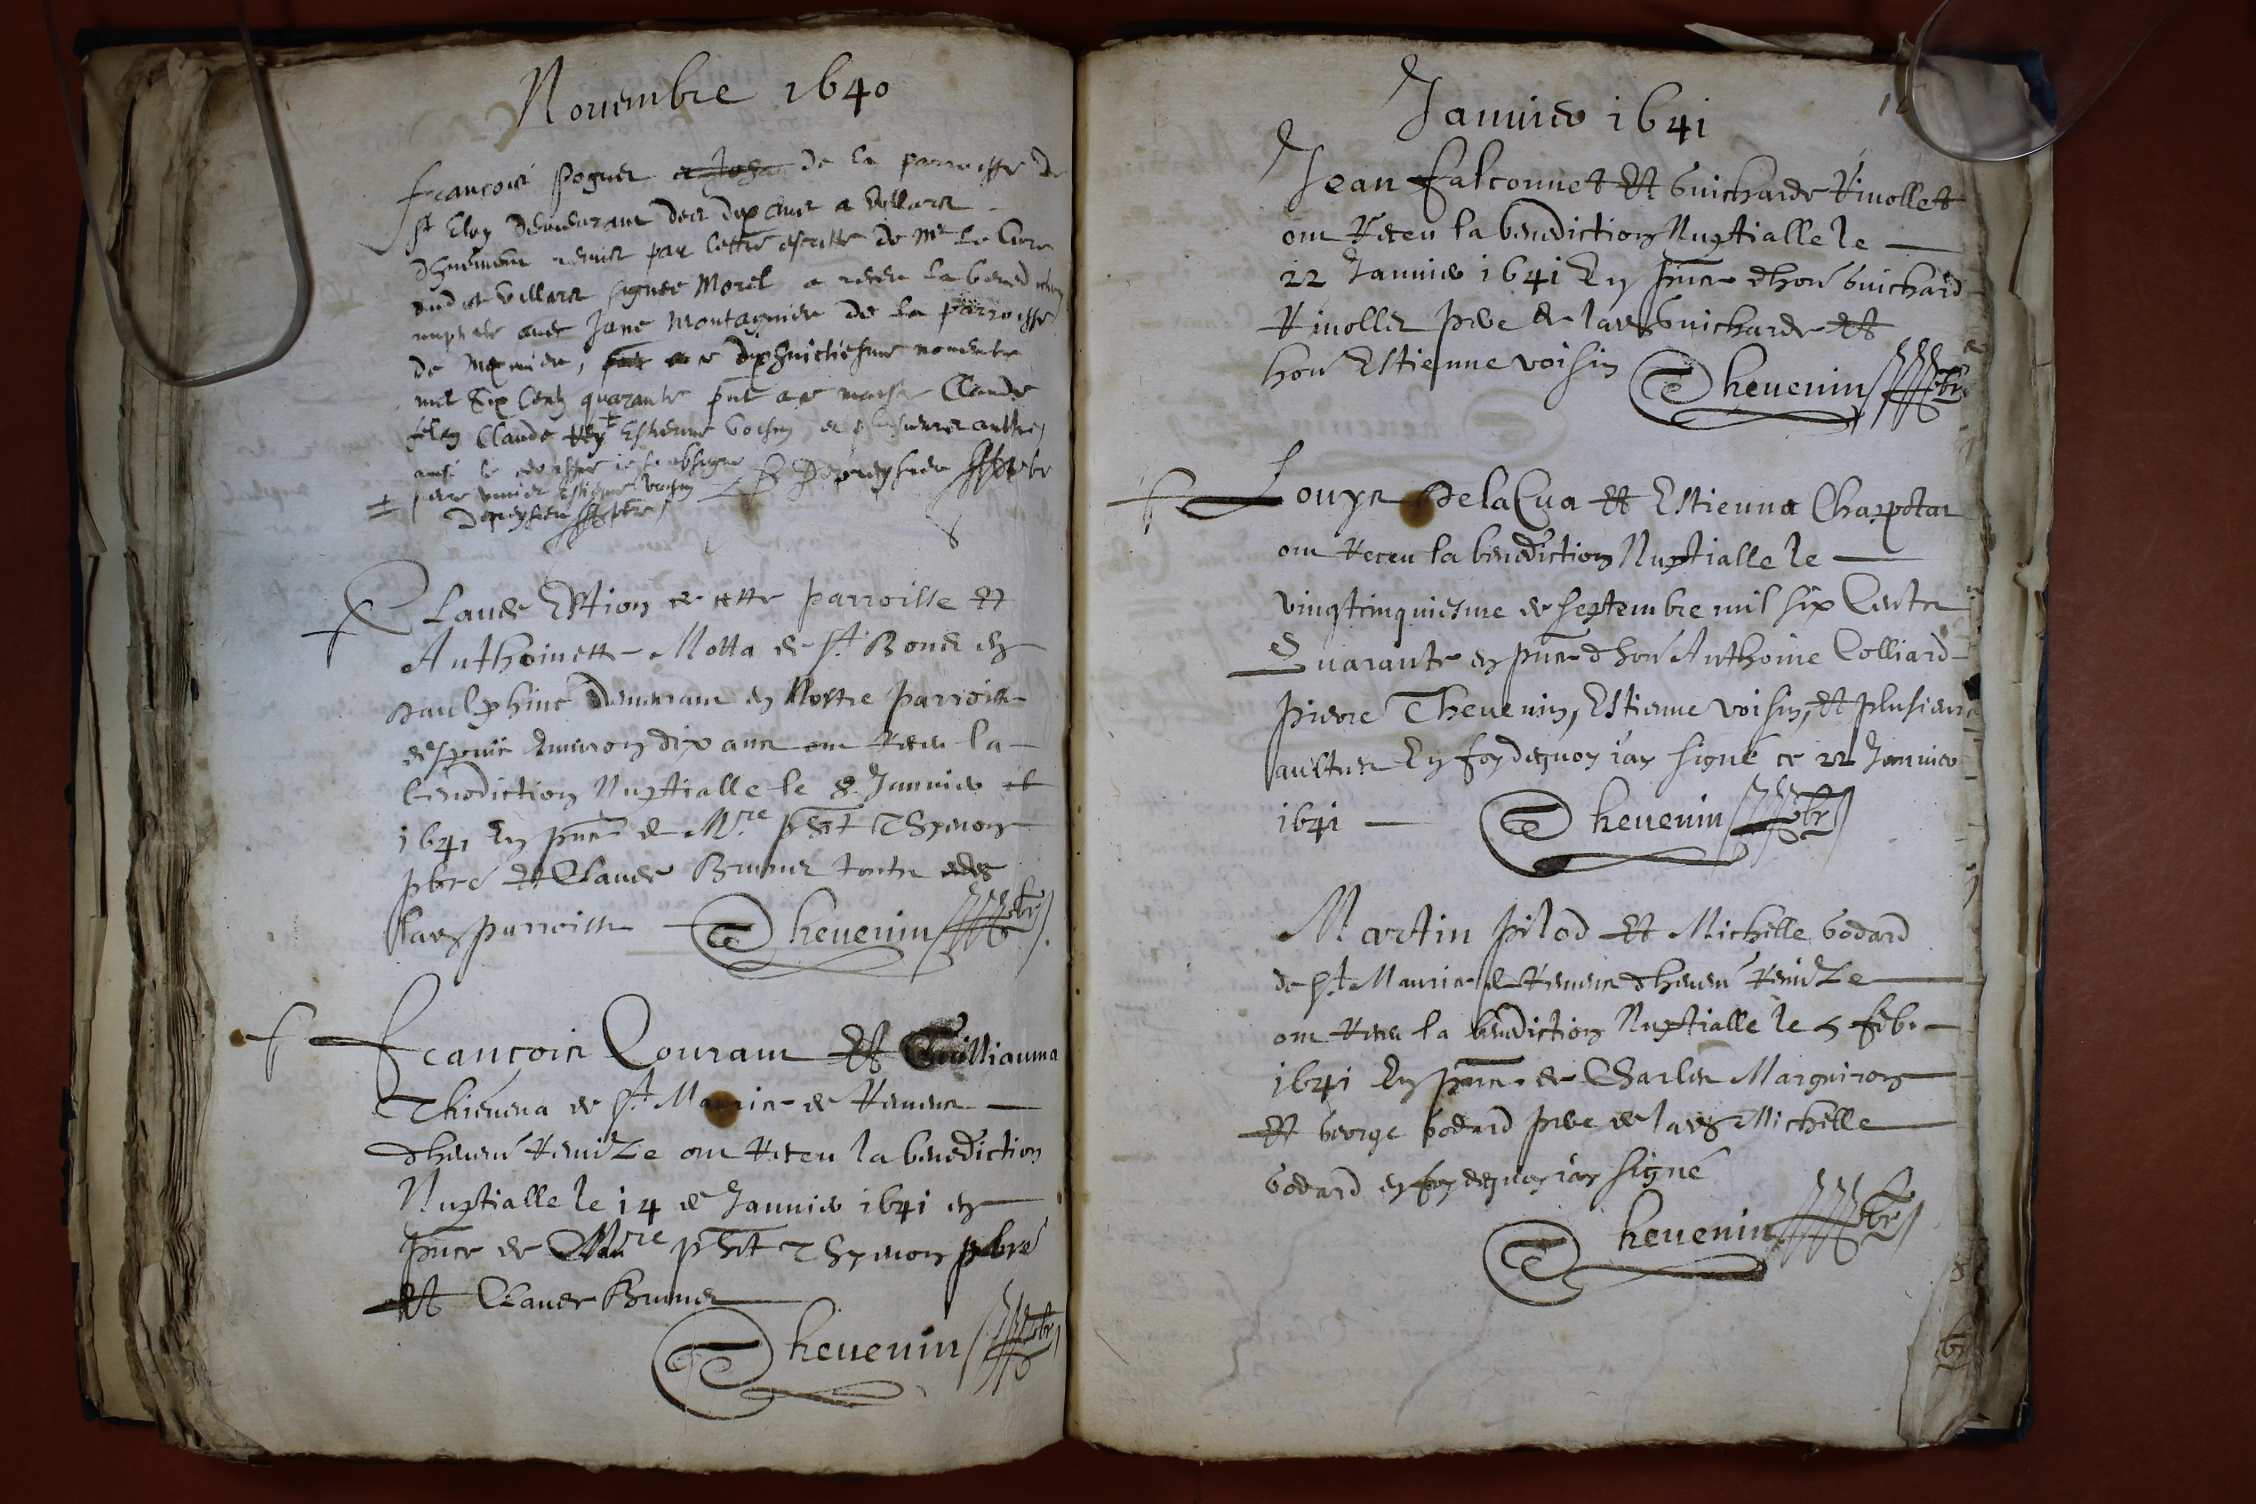 Nouembre 1640
françois poguet de la parroisse de
st Eloy demeurant des dix ans a villars
par lettre escritte de mr le Cure
dud villars signee Morel a receu la bened
nuptiale auec Jane montagnier de la parroisse
de meximieu, ce dixhuictiesme nouembre
mil six Centz quarante pnt ace Claude
Claude Rey Estienne voisin, et plusieurs autres
pbr
Estienne voisin
pbr
Claude Estion de cette parroisse et
Anthoinette Motta de st Bonet en
daulphiné demurant en Nostre parroisse
despuis enuiron dix ans ont receu la
benediction Nuptialle le 8 Januier
1641 En pnce de Mre phet Thymon
pbre et Claude Brunet toute de
lad parroisse Theuenin pbr
françois Courant et Guilliauma
Thieuena de st Maurice de Remens
dheuem Remize ont Receu la benediction
Nuptialle le 14 de Januier 1641 en
pnce de Mre phet Thymon pbre
et Claude Brunet
Theuenin pbr
Januier 1641
Jean falconnet et Guicharde Riuollet
ont Receu la benediction Nuptialle le
22 Januier 1641 En pnce dhon Guichard
Riuollet pere de lad Guicharde et
hon Estienne voisin Theuenin pbr
Louys Dela Cua et Estienna Chappotat
ont Receu la benediction Nuptialle le
vingtcinquiesme de septembre mil six Centz
Quarante en pnce dhon Anthoine Colliard
pierre Theuenin, Estienne voisin, et plusieurs
aultres En foy dequoy iay signé ce 22 Januier
1641 Theuenin pbr
Martin pilod et Michelle Godard
de st Maurice de Remens dheuem Remize
ont Receu la benediction Nuptialle le 5 feb.
1641 En pnce de Charles Marguiron
et George Godard pere de lad Michelle
Godard en foy dequoy iay signé
Theuenin pbr